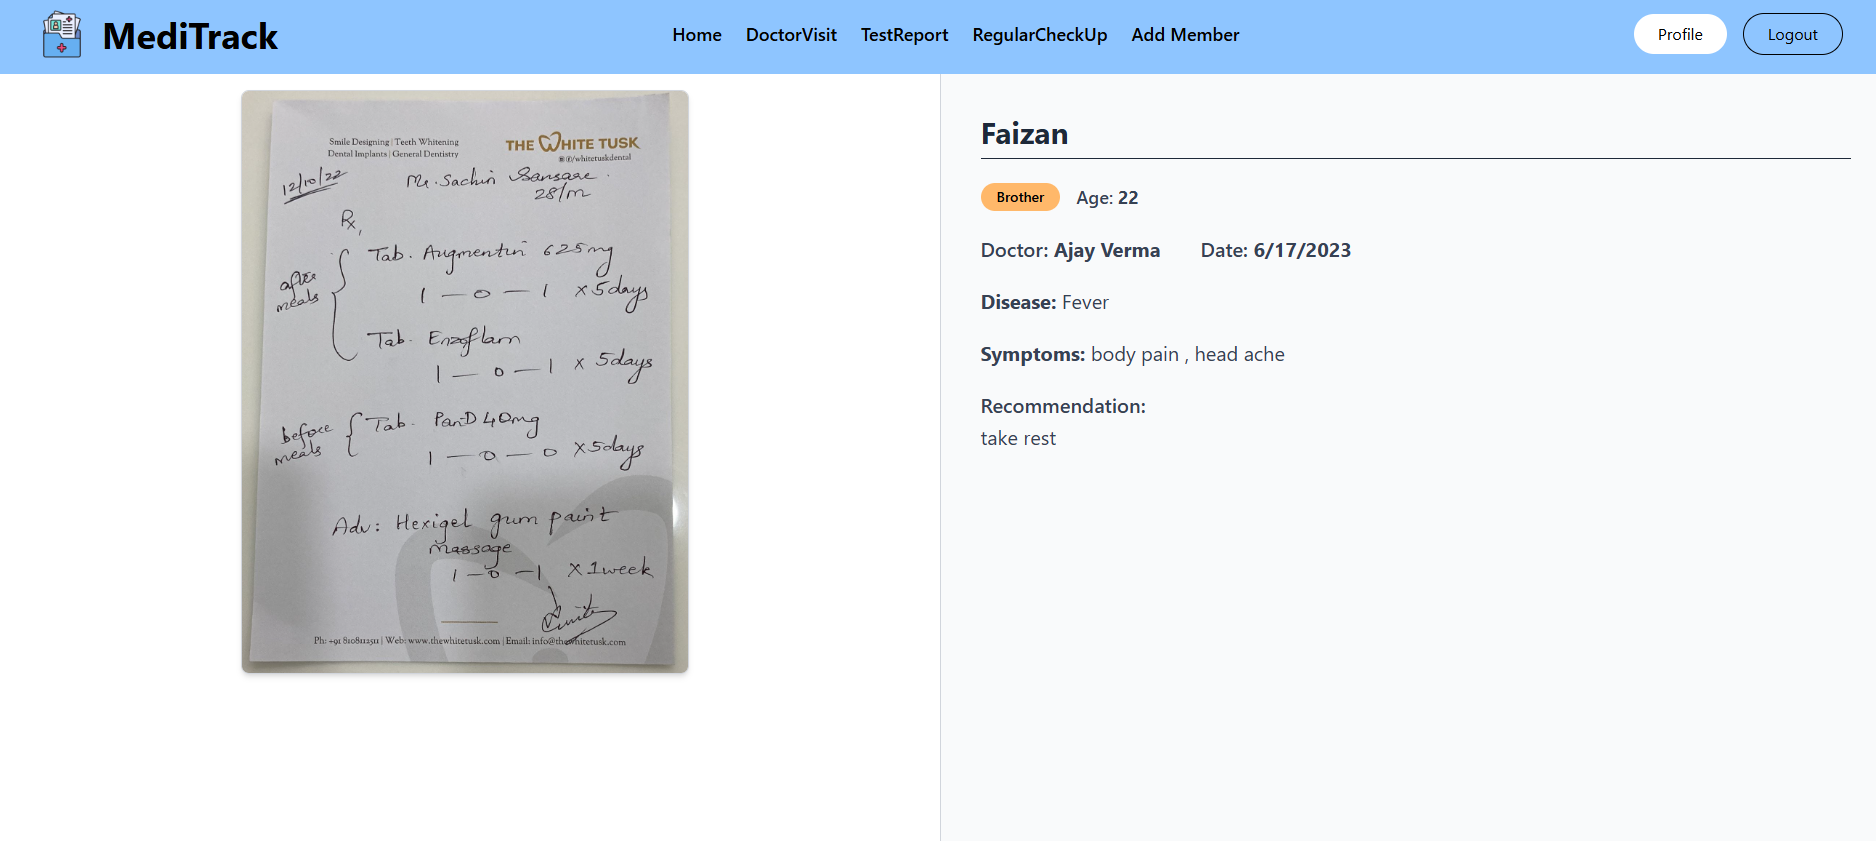 MediTrack
Home DoctorVisit TestReport RegularCheckUp Add Member
Profile Logout
Smile Designing | Teeth Whitening
Dental Implants | General Dentistry
THE WHITE TUSK
/whitetuskdental
12/10/22
Mr. Sachin Sansare.
28/m
Rx,
after
meals
Tab. Augmentin 625mg
1 — 0 — 1 x 5days
Tab. Enzoflam
1 — 0 — 1 x 5days
before
meals
Tab. PanD 40mg
1 — 0 — 0 x 5days
Adv: Hexigel gum paint
massage
1 — 0 — 1 x 1week
Ph: +91 8108112511 | Web: www.thewhitetusk.com | Email: info@thewhitetusk.com
Faizan
Brother Age: 22
Doctor: Ajay Verma Date: 6/17/2023
Disease: Fever
Symptoms: body pain , head ache
Recommendation:
take rest